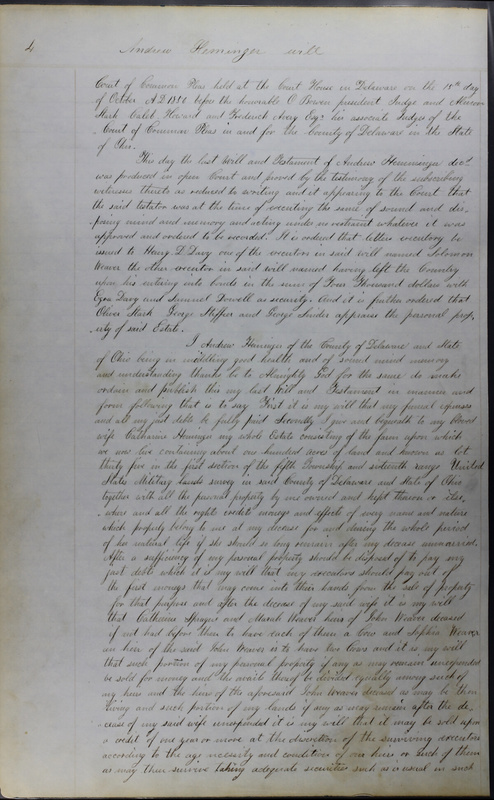 4
Andrew Heminger will
Court of Common Pleas held at the Court House in Delaware on the 18th day
of October A.D. 1850 before the honourable O Bowen president Judge and
Stark Caleb Howard and Frederick Avery Esqs his associate Judges of the
Court of Common Pleas in and for the County of Delaware in the State
of Ohio.
This day the last Will and Testament of Andrew Hemminger decd
was produced in open Court and proved by the testimony of the subscribing
witnesses thereto as reduced to writing and it appearing to the Court that
the said testator was at the time of executing the same of sound and dis-
posing mind and memory and acting under no restraint whatever it was
approved and ordered to be recorded. It is ordered that letters executory be
issued to Henry D. Davy one of the executors in said will named Solomon
Weaver the other executor in said will named having left the Country
upon his entering into bonds in the sum of Four Thousand dollars with
Ezra Davy and Samuel Dowell as security. And it is further ordered that
Oliver Stark George and George Snider appraise the personal prop-
erty of said Estate.
I Andrew Heminger of the County of Delaware and State
of Ohio being in midling good health and of sound mind memory
and understanding thanks be to Almighty God for the same do make
ordain and publish this my last Will and Testament in manner and
form following that is to say First it is my will that my funeral expenses
and all my just debts be fully paid Secondly I give and bequeath to my beloved
wife Catharine Heminger my whole Estate consisting of the farm upon which
we now live containing about one hundred acres of land and known as lot
thirty five in the first section of the fifth Township and sixteenth range United
States Military Lands survey in said County of Delaware and State of Ohio
together with all the personal property by me owned and kept thereon or else-
where and all the rights credits moneys and effects of every name and nature
which properly belong to me at my decease for and during the whole period
of her natural life if she should so long remain after my decease unmarried.
After a sufficiency of my personal property should be disposed of to pay my
just debts which it is my will that my executors should pay out of
the first moneys that may come into their hands from the sale of property
for that purpose and after the decease of my said wife it is my will
that Catherine Sprague and Mariah Weaver heirs of John Weaver deceased
if not had before then to have each of them a Cow and Sophia Weaver
an heir of the said John Weaver is to have two Cows and it is my will
that such portion of my personal property if any as may remain unexpended
be sold for money and the avails thereof be divided equally among such of
my heirs and the heirs of the aforesaid John Weaver deceased as may be then
living and such portion of my lands if any as may remain after the de-
cease of my said wife unexpended it is my will that it may be sold upon
a credit of one year or more at the discretion of the surviving executors
according to the age necessity and conditions of our heirs or such of them
as may then survive taking adequate securities such as is usual in such